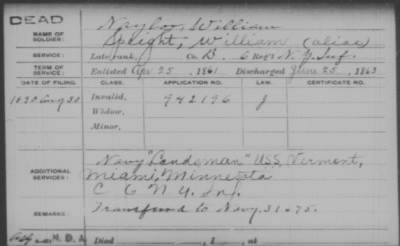 DEAD
NAME OF SOLDIER: Naylor, William
Speight, William (alias)
SERVICE: Late rank, Co. B, 6 Reg't N. Y. Inf.
TERM OF SERVICE: Enlisted Apr 25, 1861 Discharged June 25, 1863
DATE OF FILING. CLASS. APPLICATION NO. LAW. CERTIFICATE NO.
1890 Aug 30 Invalid, 942196 J
Widow,
Minor,
ADDITIONAL SERVICES: Navy U.S.S. Vermont,
Miami, Minnesota
C 6 N.Y. Inf.
REMARKS: to Navy.
N.D.A. Died , 1 , at